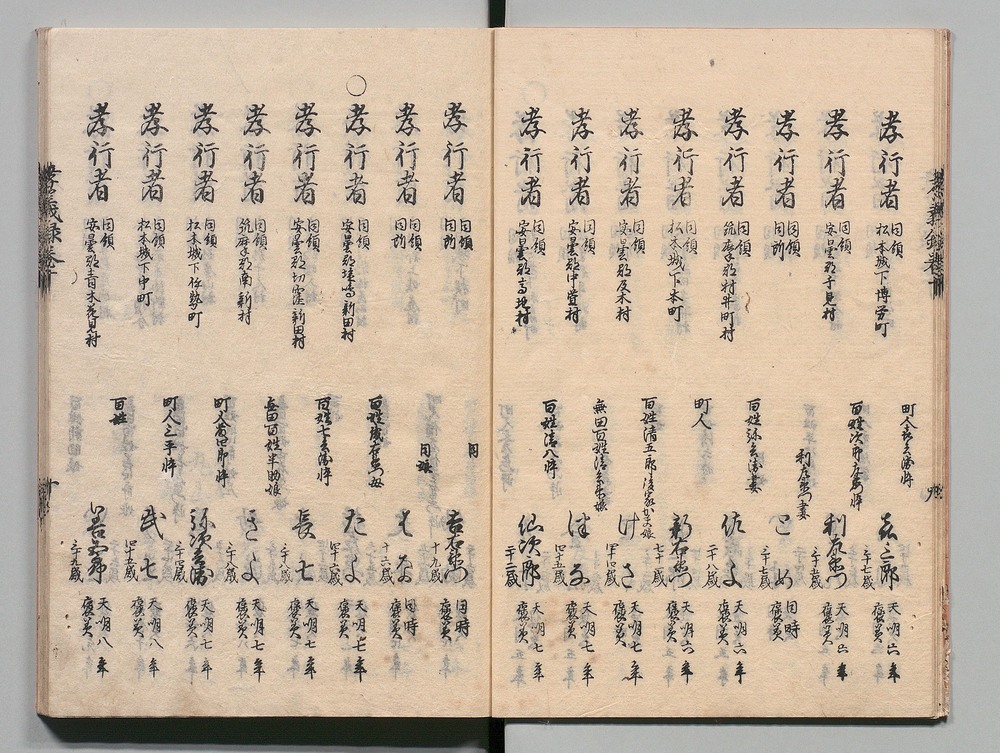 孝行者
同領
松本城下博労町
町人喜兵衛忰
喜三郎
三十七歳
天明六年
褒美
孝行者
同領
安曇郡千見村
百姓次郎左衛門忰
利左衛門
三十五歳
天明六年
褒美
孝行者
同領
同所
利左衛門妻
とめ
三十七歳
同時
褒美
孝行者
同領
筑摩郡村井町村
百姓弥兵衛妻
佐よ
二十八歳
天明六年
褒美
孝行者
同領
松本城下本町
町人
新右衛門
七十一歳
天明六年
褒美
孝行者
同領
安曇郡及木村
百姓清五郎後家かよ娘
けさ
四十四歳
天明七年
褒美
孝行者
同領
安曇郡中萱村
無田百姓清兵衛娘
はな
四十五歳
天明七年
褒美
孝行者
同領
安曇郡高地村
百姓清八忰
仙次郎
二十三歳
天明七年
褒美
孝行者
同領
同所
同
吉右衛門
十九歳
同時
褒美
孝行者
同領
同所
同娘
はな
十六歳
同時
褒美
孝行者
同領
安曇郡塩嶋新田村
百姓儀右衛門母
たよ
四十六歳
天明七年
褒美
孝行者
同領
安曇郡切窪新田村
百姓十兵衛忰
長七
二十八歳
天明七年
褒美
孝行者
同領
筑摩郡南新村
無田百姓半助娘
きよ
三十八歳
天明八年
褒美
孝行者
同領
松本城下伊勢町
町人常四郎忰
弥次兵衛
三十四歳
天明七年
褒美
孝行者
同領
松本城下中町
町人三平忰
武七
四十五歳
天明八年
褒美
孝行者
同領
安曇郡青木花見村
百姓
善寄郎
三十九歳
天明八年
褒美
孝義録巻十